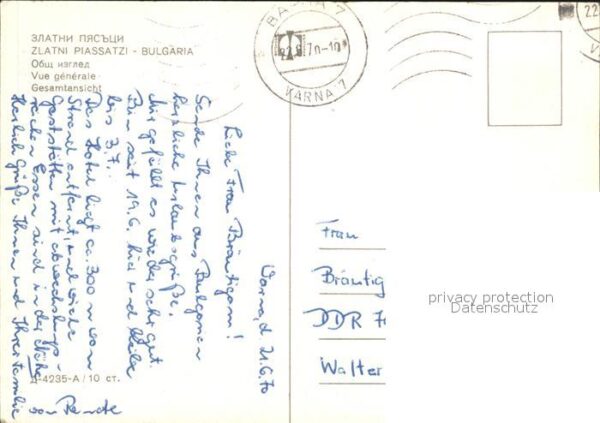 ЗЛАТНИ ПЯСЪЦИ
ZLATNI PIASSATZI - BULGARIA
Общ изглед
Vue générale
Gesamtansicht
ВАРНА 7
22.6.70-10
VARNA 7
22
Varna, d. 21.6.70
Liebe Frau Bräutigam!
Sende Ihnen aus Bulgarien
herzliche Urlaubsgrüße.
Mir gefällt es wieder sehr gut.
Bin seit 19.6. hier und bleibe
bis 3.7.
Das Hotel liegt ca. 300 m vom
Strand entfernt, und viele
Gaststätten mit abwechslungs-
reichen Essen sind in der Nähe.
Herzliche Grüße Ihnen und Ihrer Familie
von
Frau
Bräutig
DDR 70
Walter
privacy protection
Datenschutz
Д-4235-А/10 ст.